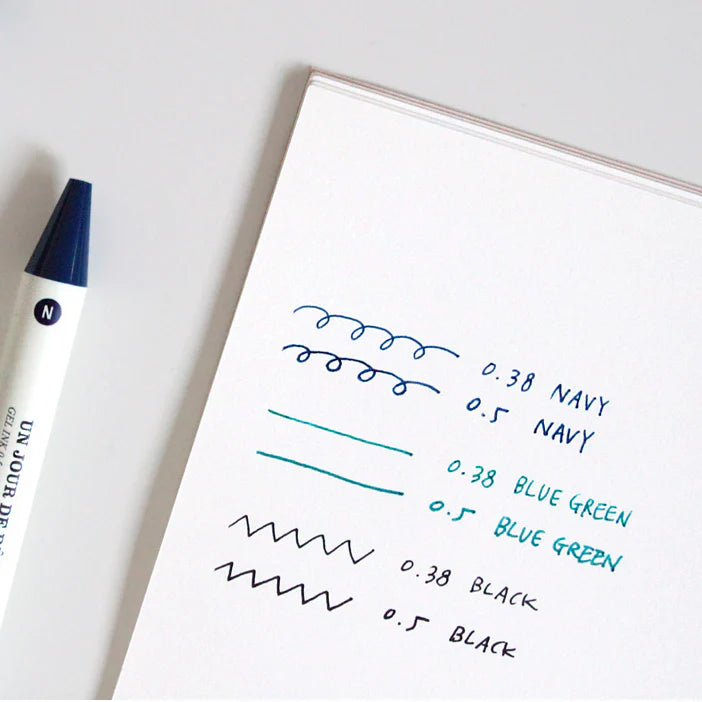 N
UN JOUR DE
GEL INK
0.38 NAVY
0.5 NAVY
0.38 BLUE GREEN
0.5 BLUE GREEN
0.38 BLACK
0.5 BLACK